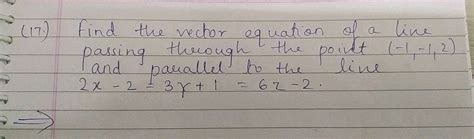 (17) Find the vector equation of a line
passing through the point (-1,-1,2)
and parallel to the line
2x - 2 = 3y + 1 = 6z - 2.